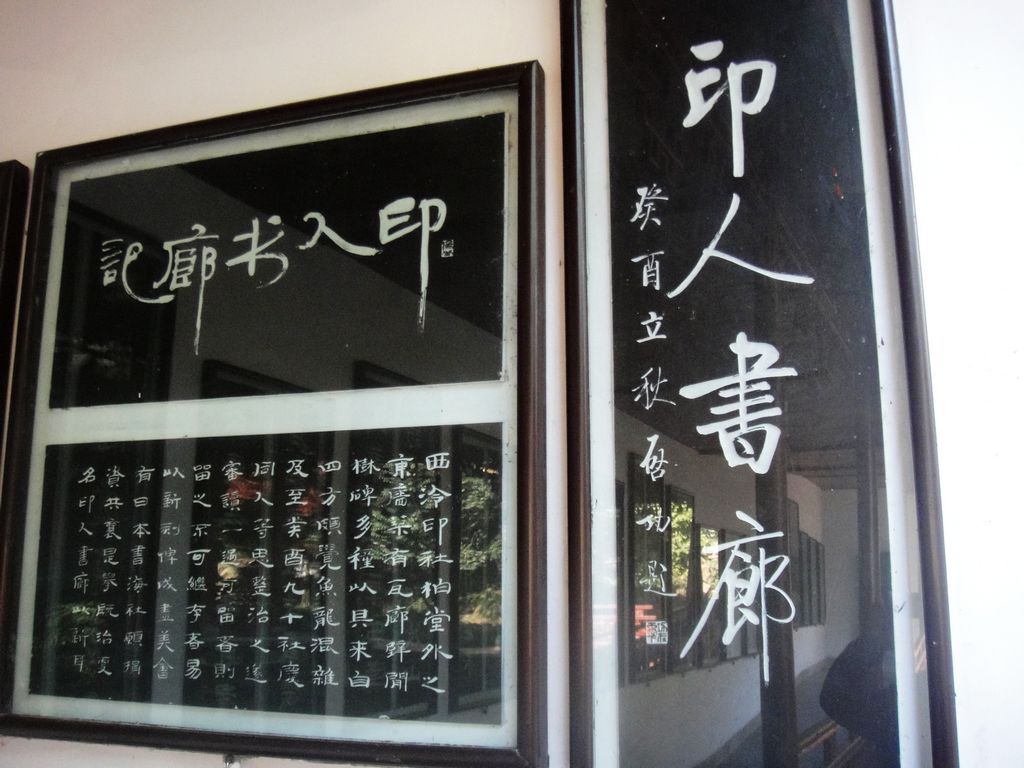 印人書廊
癸酉立秋啟功題
印人书廊記
西泠印社柏堂外之
東牆築有瓦廊肆間
樹碑多種以其來自
四方頗覺魚龍混雜
及至癸酉九十社慶
同人等思整治之遂
審讀一過可留者則
留之不可繼存者易
以新刻俾成盡美會
有日本書海社願捐
資共襄是舉既治更
名印人書廊